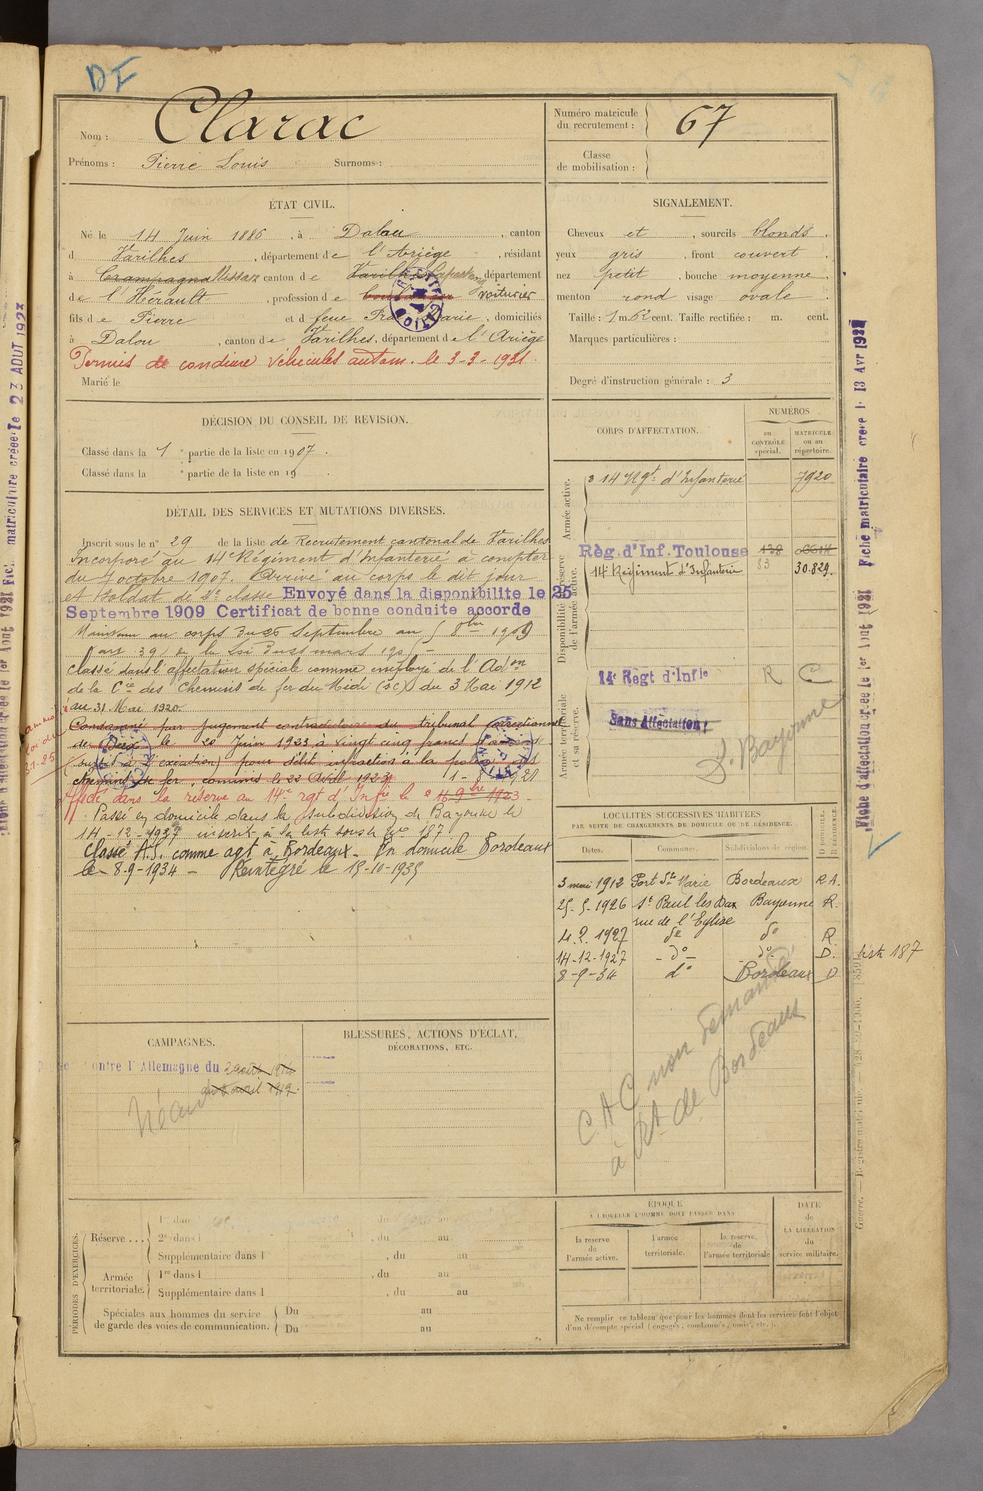 DI
Nom : Clarac
Prénoms : Pierre Louis Surnoms :
Numéro matricule du recrutement : 67
Classe de mobilisation :
ÉTAT CIVIL.
Né le 14 Juin 1886, à Dalou, canton
d Varilhes, département de l'Ariège, résidant
à Crampagna canton de Varilhes, département
de l'Hérault, profession de boulanger voiturier
fils de Pierre et d feue Marie, domiciliés
à Dalou, canton de Varilhes, département de l'Ariège
Permis de conduire véhicules autom. le 3-3-1931.
Marié le
SIGNALEMENT.
Cheveux et , sourcils blonds,
yeux gris, front couvert,
nez petit, bouche moyenne,
menton rond visage ovale.
Taille : 1 m. 62 cent. Taille rectifiée : m. cent.
Marques particulières :
Degré d'instruction générale : 3
DÉCISION DU CONSEIL DE REVISION.
Classé dans la 1 e partie de la liste en 1907.
Classé dans la e partie de la liste en 19
DÉTAIL DES SERVICES ET MUTATIONS DIVERSES.
Inscrit sous le n° 29 de la liste de Recrutement cantonal de Varilhes
Incorporé au 14e Régiment d'Infanterie à compter
du 7 octobre 1907. Arrivé au corps le dit jour
et Soldat de 2e classe Envoyé dans la disponibilite le 25
Septembre 1909 Certificat de bonne conduite accorde
Maintenu au corps du 25 Septembre au 5 8bre 1909
classé dans l'affectation spéciale comme employé de l'Adon
de la Cie des Chemins de fer du Midi (sc) du 3 Mai 1912
au 31 Mai 1920.
Condamné par jugement contradictoire du tribunal correctionnel
de Dax le 20 Juin 1923 à vingt cinq francs d'amende
pour délit infraction à la police des
chemins de fer, commis le 22 Avril 1923
Affecté dans la réserve au 14e rgt d'Infie le 16-9bre 1923.
Passé en domicile dans la subdivision de Bayonne le
14-12-1927 inscrit à la liste sous le No 187
Classé A.S. comme agt à Bordeaux. En domicile Bordeaux
le 8-9-1934 - Réintégré le 15-10-1935
CORPS D'AFFECTATION.
NUMÉROS
au CONTRÔLE spécial.
MATRICULE ou au répertoire.
Armée active.
14 Rgt d'Infanterie 7920
Disponibilité et réserve de l'armée active.
Règ. d'Inf. Toulouse 138
14 Régiment d'Infanterie 83 30.829.
Armée territoriale et sa réserve.
14e Regt d'Infie R C
Sans Affectation
S. Bayonne
LOCALITÉS SUCCESSIVES HABITÉES
PAR SUITE DE CHANGEMENTS DE DOMICILE OU DE RÉSIDENCE.
Dates. Communes. Subdivisions de région. D DOMICILE. R RÉSIDENCE.
3 mai 1912 Port Ste Marie Bordeaux R A.
25-5-1926 St Paul les Dax Bayonne R.
rue de l'Eglise
4.2.1927 do do R
14-12-1927 -do- do D. liste 187
8-9-34 do Bordeaux D
CAC non demandé
à Rt de Bordeaux
CAMPAGNES.
contre l'Allemagne du 2 août 1914
au avril 1919
Néant
BLESSURES, ACTIONS D'ÉCLAT,
DÉCORATIONS, ETC.
PÉRIODES D'EXERCICES.
Réserve ... 1re dans
2e dans l , du au
Supplémentaire dans l , du au
Armée territoriale. 1re dans l , du au
Supplémentaire dans l , du au
Spéciales aux hommes du service de garde des voies de communication. Du au
Du au
ÉPOQUE
À LAQUELLE L'HOMME DOIT PASSER DANS
la réserve de l'armée active.
l'armée territoriale.
la réserve de l'armée territoriale
DATE de LA LIBÉRATION du service militaire.
Ne remplir ce tableau que pour les hommes dont les services font l'objet
d'un décompte spécial (engagés, condamnés, omis, etc.).
Fiche d'affectation créée le 1er Aout 1921 Fiche matriculaire créée le 13 Avr 1921
matriculaire créée le 23 AOUT 192